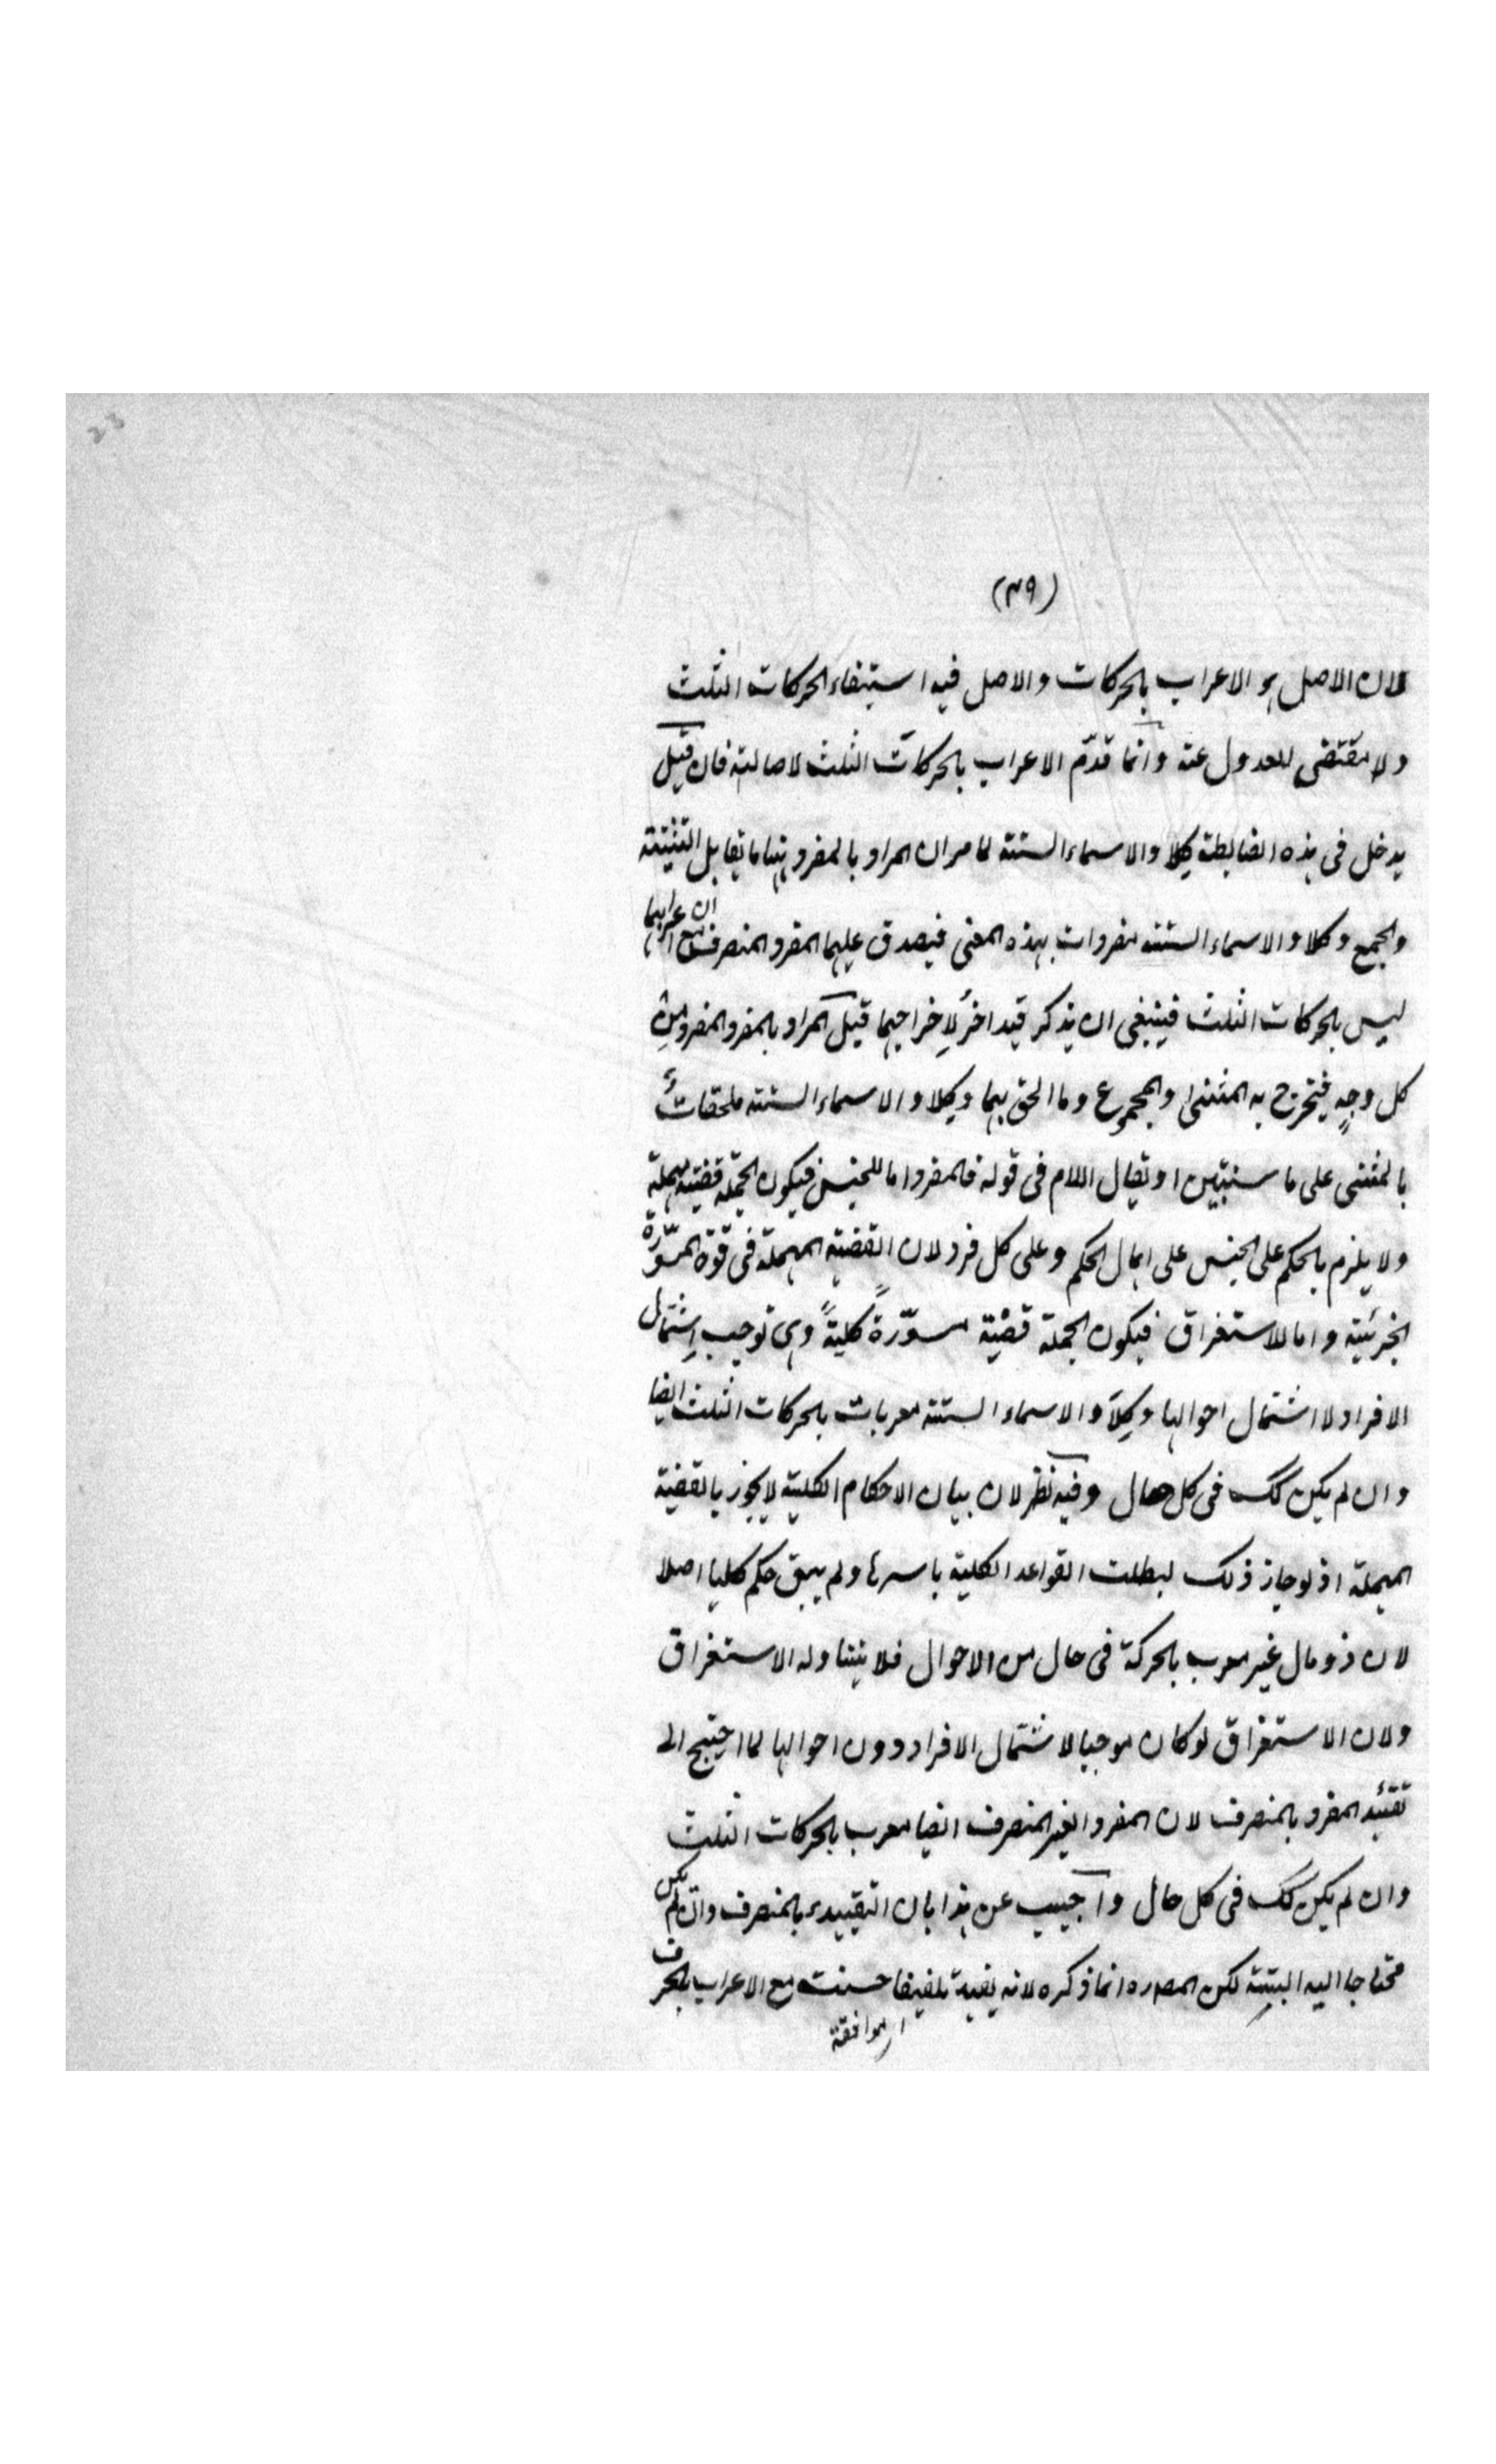 23
(٣٩)
لان الاصل هو الاعراب بالحركات والاصل فيه استيفاء الحركات الثلث
ولا مقتضى للعدول عنه وانما قدّم الاعراب بالحركات الثلث لاصالته فان قيل
يدخل فى هذه الضابطة كلا والاسماء الستة لما مر ان المراد بالمفرد ههنا ما يقابل التثنية
والجمع وكلا والاسماء الستة مفردات بهذه المعنى فيصدق عليهما المفرد المنصرف مع ان اعرابهما
ليس بالحركات الثلث فينبغى ان يذكر قيد اخرُ لِاخراجهما قيل المراد بالمفرد المفرد من
كل وجهٍ فيخرج به المثنى والمجموع وما الحق بهما وكِلا والاسماء الستة ملحقاتٌ
بالمثنى على ما سنبيّن او يقال اللام فى قوله فالمفرد اما للجنس فيكون الجملة قضية مهملة
ولا يلزم بالحكم على الجنس على اهمال الحكم وعلى كل فرد لان القضية المهملة فى قوّة المسوّرة
الجزئية واما للاستغراق فيكون الجملة قضية مسوّرةً كليةً وهى توجب اِشتمال
الافراد لا اشتمال احوالها وكِلا والاسماء الستة معربات بالحركات الثلث ايضا
وان لم يكن كك فى كل حال وفيه نظر لان بيان الاحكام الكلية لا يجوز بالقضية
المهملة اذ لو جاز ذلك لبطلت القواعد الكلية باسرها ولم يبق حكم كليا اصلا
لان ذو مال غير معرب بالحركة فى حال من الاحوال فلا يتناوله الاستغراق
ولان الاستغراق لو كان موجبا لاشتمال الافراد دون احوالها لما احتيج الى
تقئيد المفرد بالمنصرف لان المفرد الغير المنصرف ايضا معرب بالحركات الثلث
وان لم يكن كك فى كل حال واجيب عن هذا بان التقييد بالمنصرف وان لم يكن
محتاجا اليه البتة لكن المصره انما ذكره لانه يفيد تلفيفا حسنت مع الاعراب بالحرف
اى موافقة